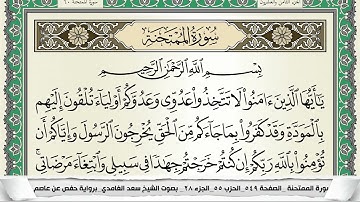 الجزء الثامن والعشرون
سورة الممتحنة ٦٠
سُورَةُ الْمُمْتَحَنَةِ
بِسْمِ اللَّهِ الرَّحْمَٰنِ الرَّحِيمِ
يَا أَيُّهَا الَّذِينَ ءَامَنُوا لَا تَتَّخِذُوا عَدُوِّي وَعَدُوَّكُمْ أَوْلِيَاءَ تُلْقُونَ إِلَيْهِم
بِالْمَوَدَّةِ وَقَدْ كَفَرُوا بِمَا جَاءَكُم مِّنَ الْحَقِّ يُخْرِجُونَ الرَّسُولَ وَإِيَّاكُمْ أَن
تُؤْمِنُوا بِاللَّهِ رَبِّكُمْ إِن كُنتُمْ خَرَجْتُمْ جِهَادًا فِي سَبِيلِي وَابْتِغَاءَ مَرْضَاتِي
سورة الممتحنة _الصفحة ٥٤٩_الحزب ٥٥_الجزء ٢٨ _ بصوت الشيخ سعد الغامدي _برواية حفص عن عاصم